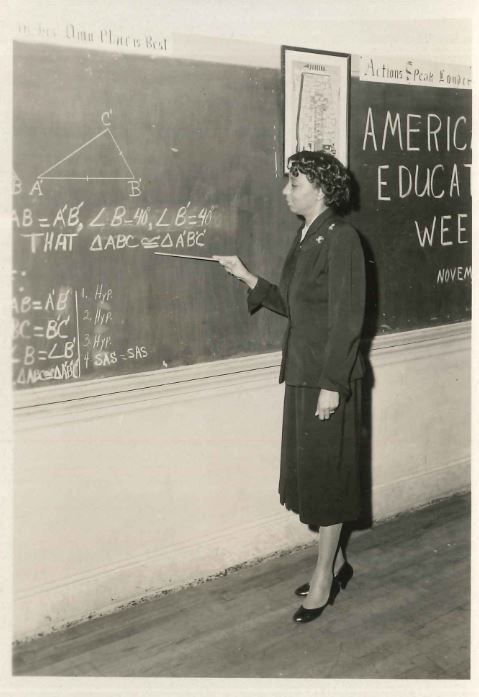 Own Place is Best
Actions Speak Louder
C'
B A' B'
AB = A'B', ∠B=40, ∠B'=40
THAT △ABC ≅ △A'B'C'
AB = A'B' 1. Hyp.
BC = B'C' 2. Hyp.
∠B = ∠B' 3. Hyp.
△ABC ≅ △A'B'C' 4 SAS = SAS
AMERIC
EDUCAT
WEE
NOVEM